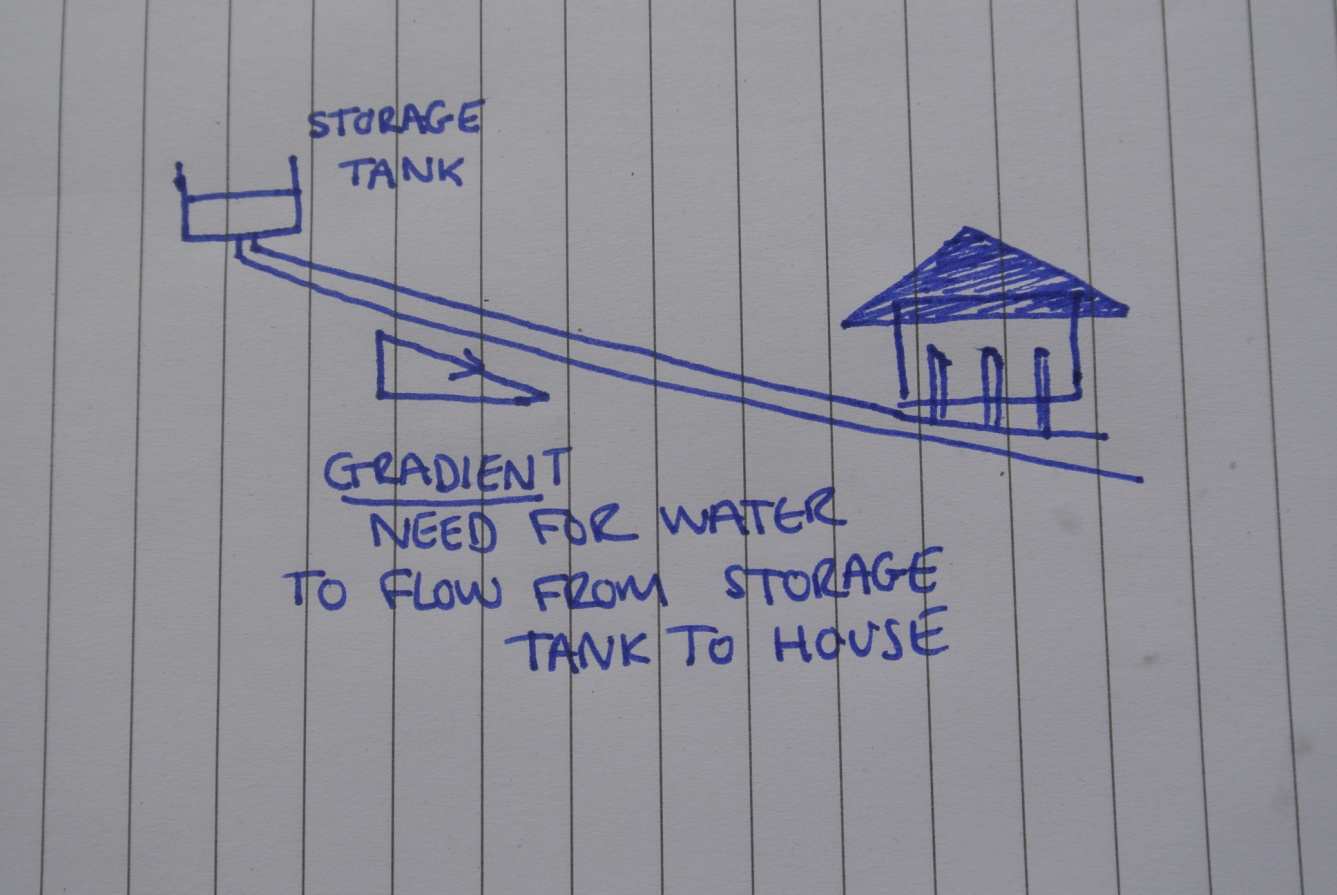 STORAGE
TANK
GRADIENT
NEED FOR WATER
TO FLOW FROM STORAGE
TANK TO HOUSE